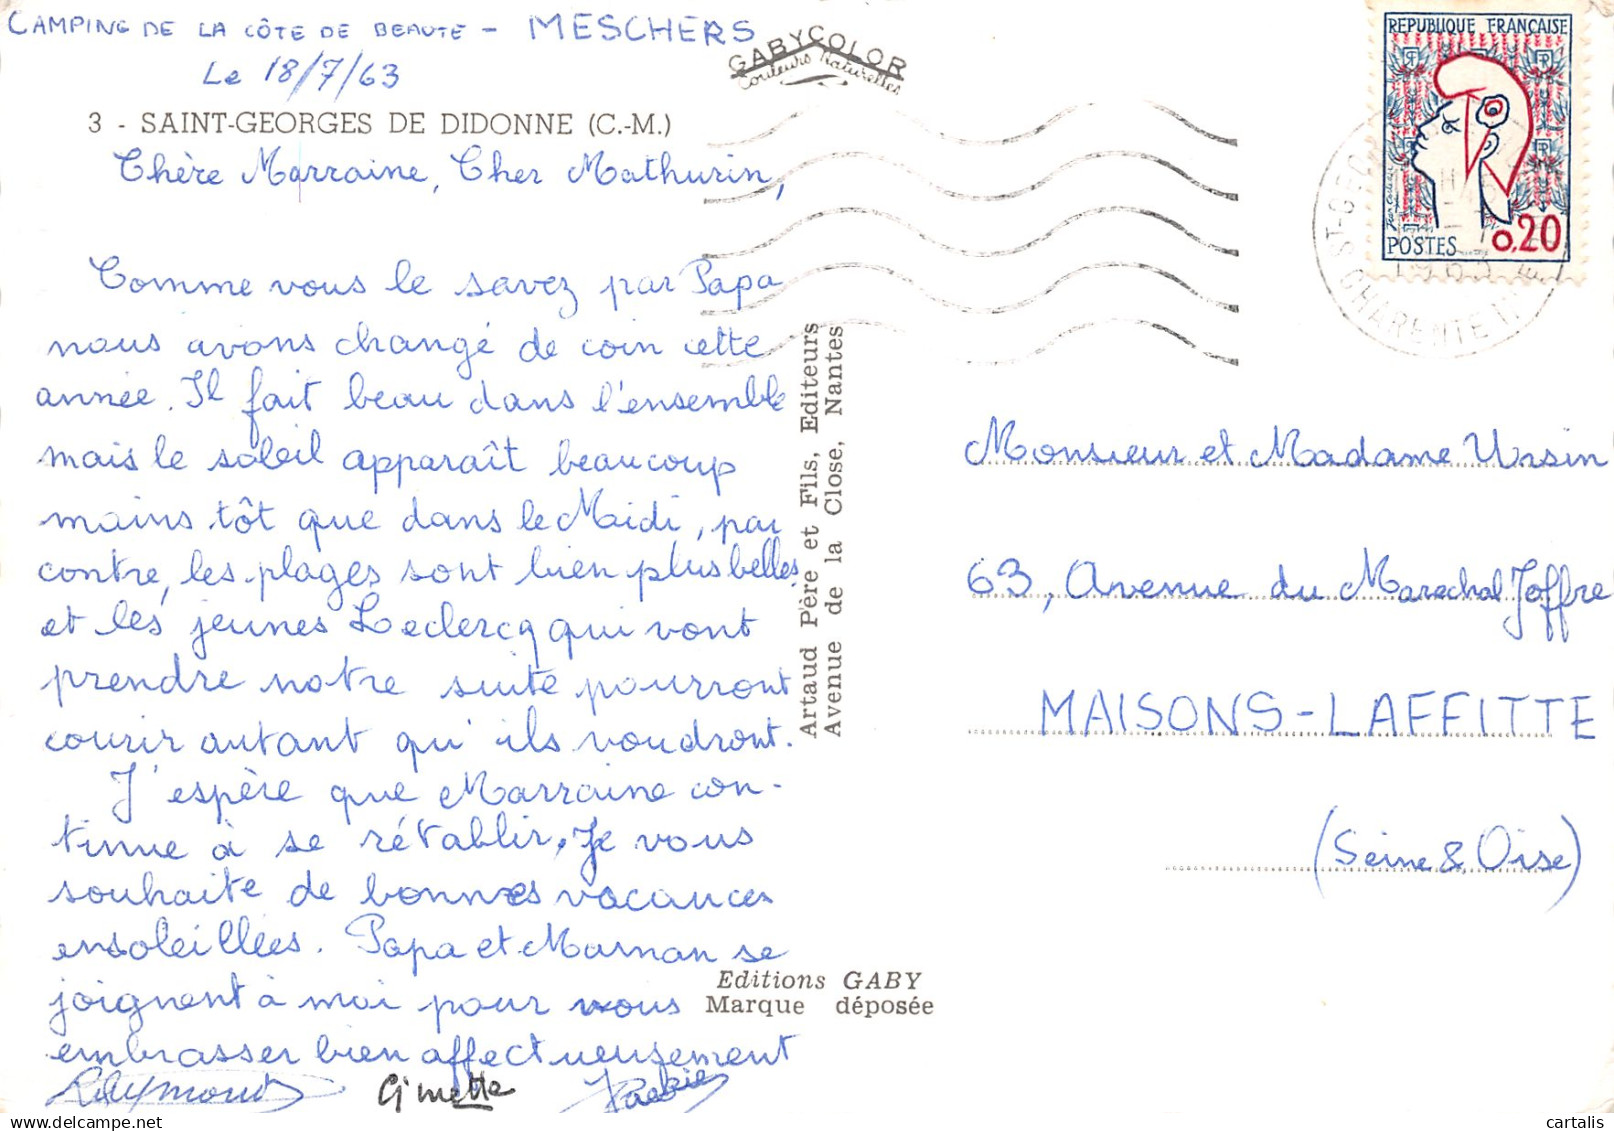 CAMPING DE LA CÔTE DE BEAUTE - MESCHERS
Le 18/7/63
GABYCOLOR
Couleurs Naturelles
3 - SAINT-GEORGES DE DIDONNE (C.-M.)
Chère Marraine, Cher Mathurin,
Comme vous le savez par Papa
nous avons changé de coin cette
année. Il fait beau dans l'ensemble
mais le soleil apparaît beaucoup
moins tôt que dans le Midi, par
contre, les plages sont bien plus belles
et les jeunes Leclercq qui vont
prendre notre suite pourront
courir autant qu'ils voudront.
J'espère que Marraine con-
tinue à se rétablir. Je vous
souhaite de bonnes vacances
ensoleillées. Papa et Maman se
joignent à moi pour vous
embrasser bien affectueusement
Raymond Ginette
Artaud Père et Fils, Editeurs
Avenue de la Close, Nantes
Editions GABY
Marque déposée
REPUBLIQUE FRANÇAISE
POSTES 0,20
ST-GEO
CHARENTE
1963
Monsieur et Madame Ursin
63, Avenue du Marechal Joffre
MAISONS-LAFFITTE
(Seine & Oise)
delcampe.net
cartalis